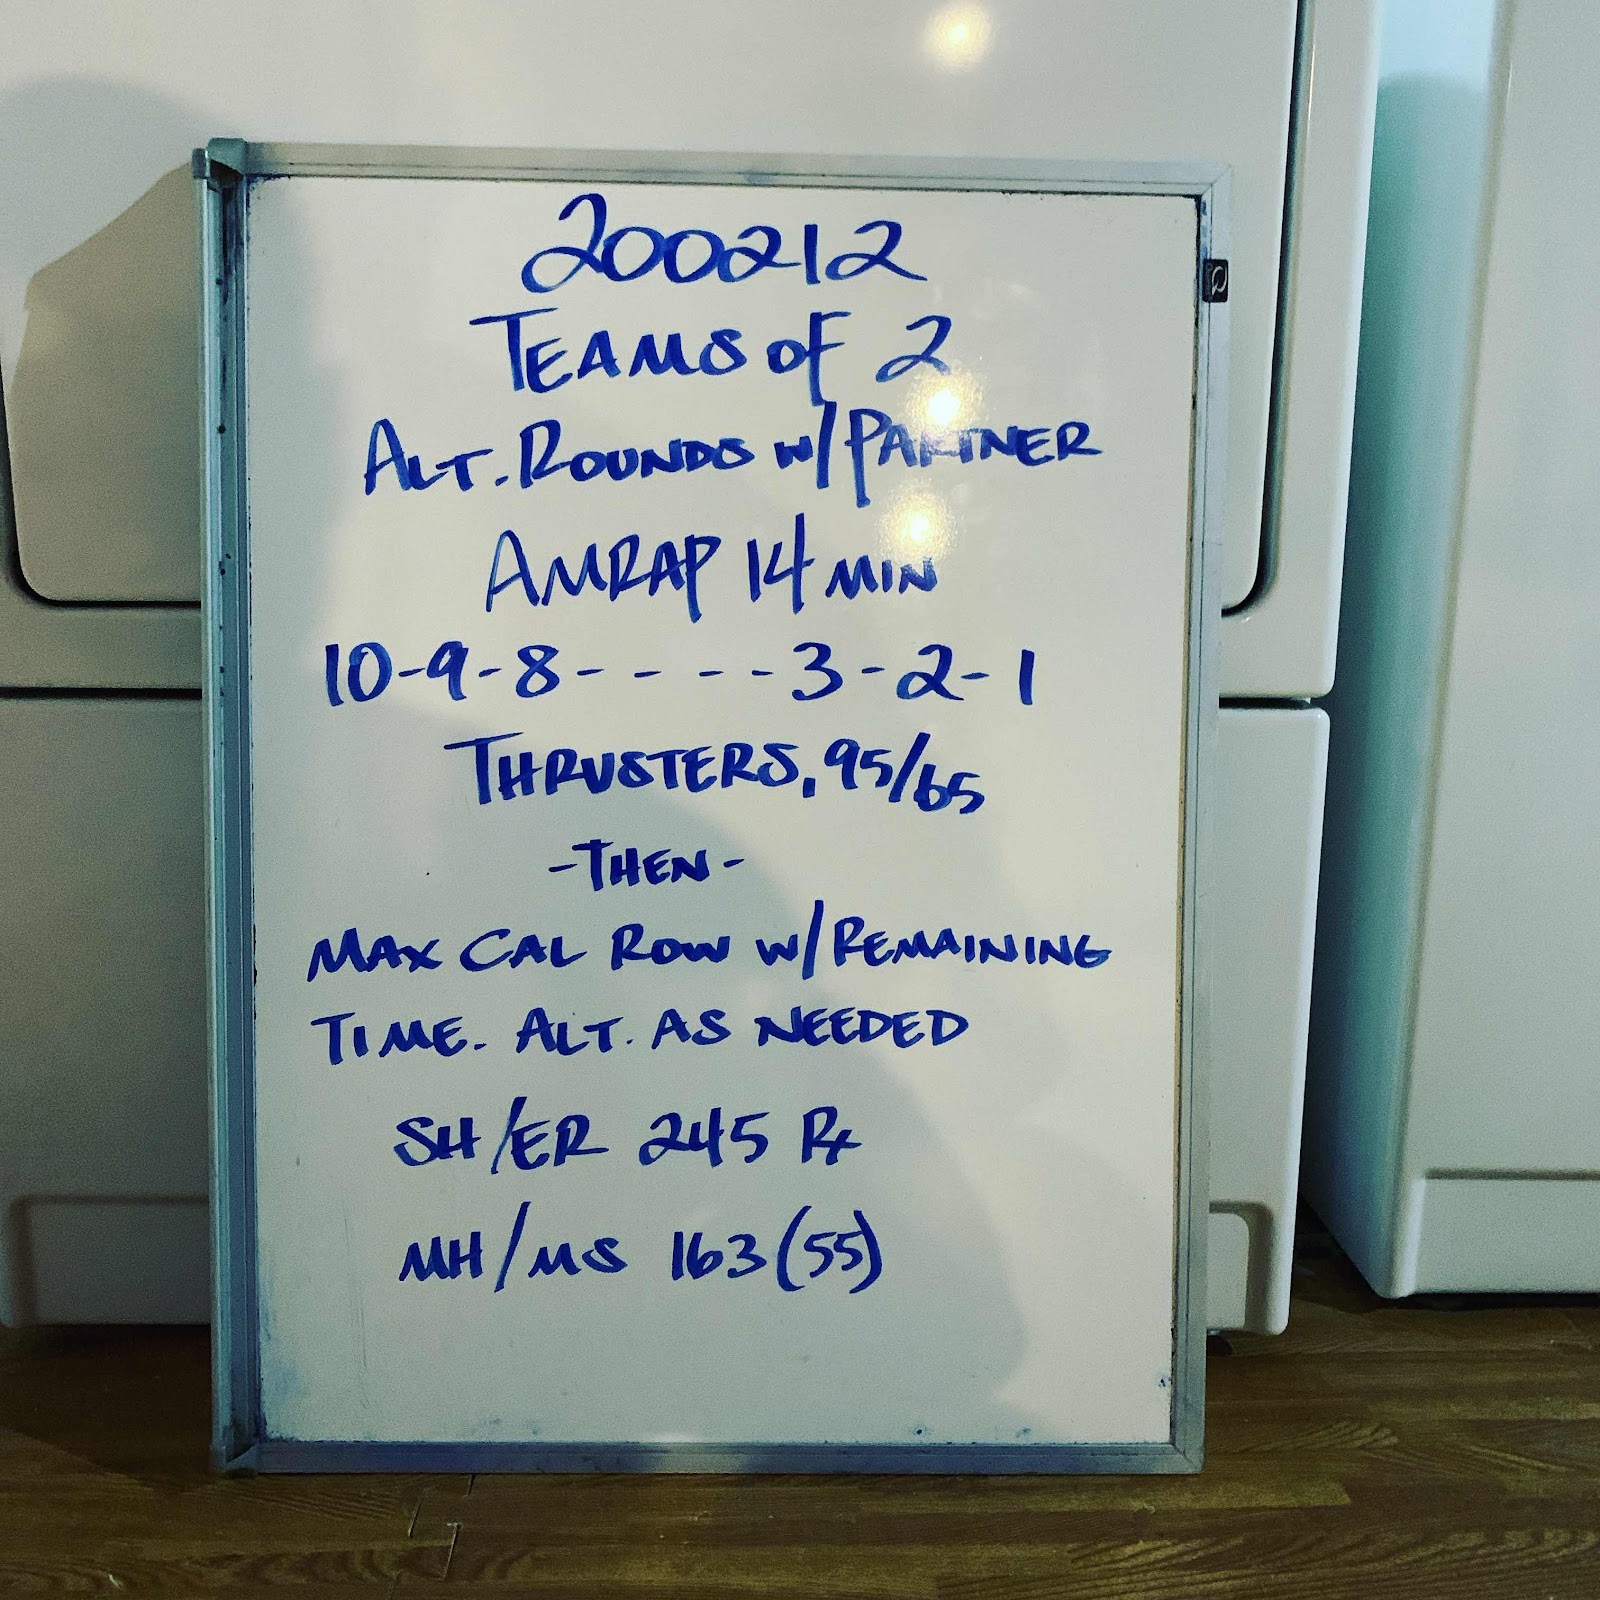 200212
TEAMS OF 2
ALT. ROUNDS W/ PARTNER
AMRAP 14 MIN
10-9-8- - - - -3-2-1
THRUSTERS, 95/65
-THEN-
MAX CAL ROW W/ REMAINING
TIME. ALT. AS NEEDED
SH/ER 245 Rx
MH/MS 163 (55)